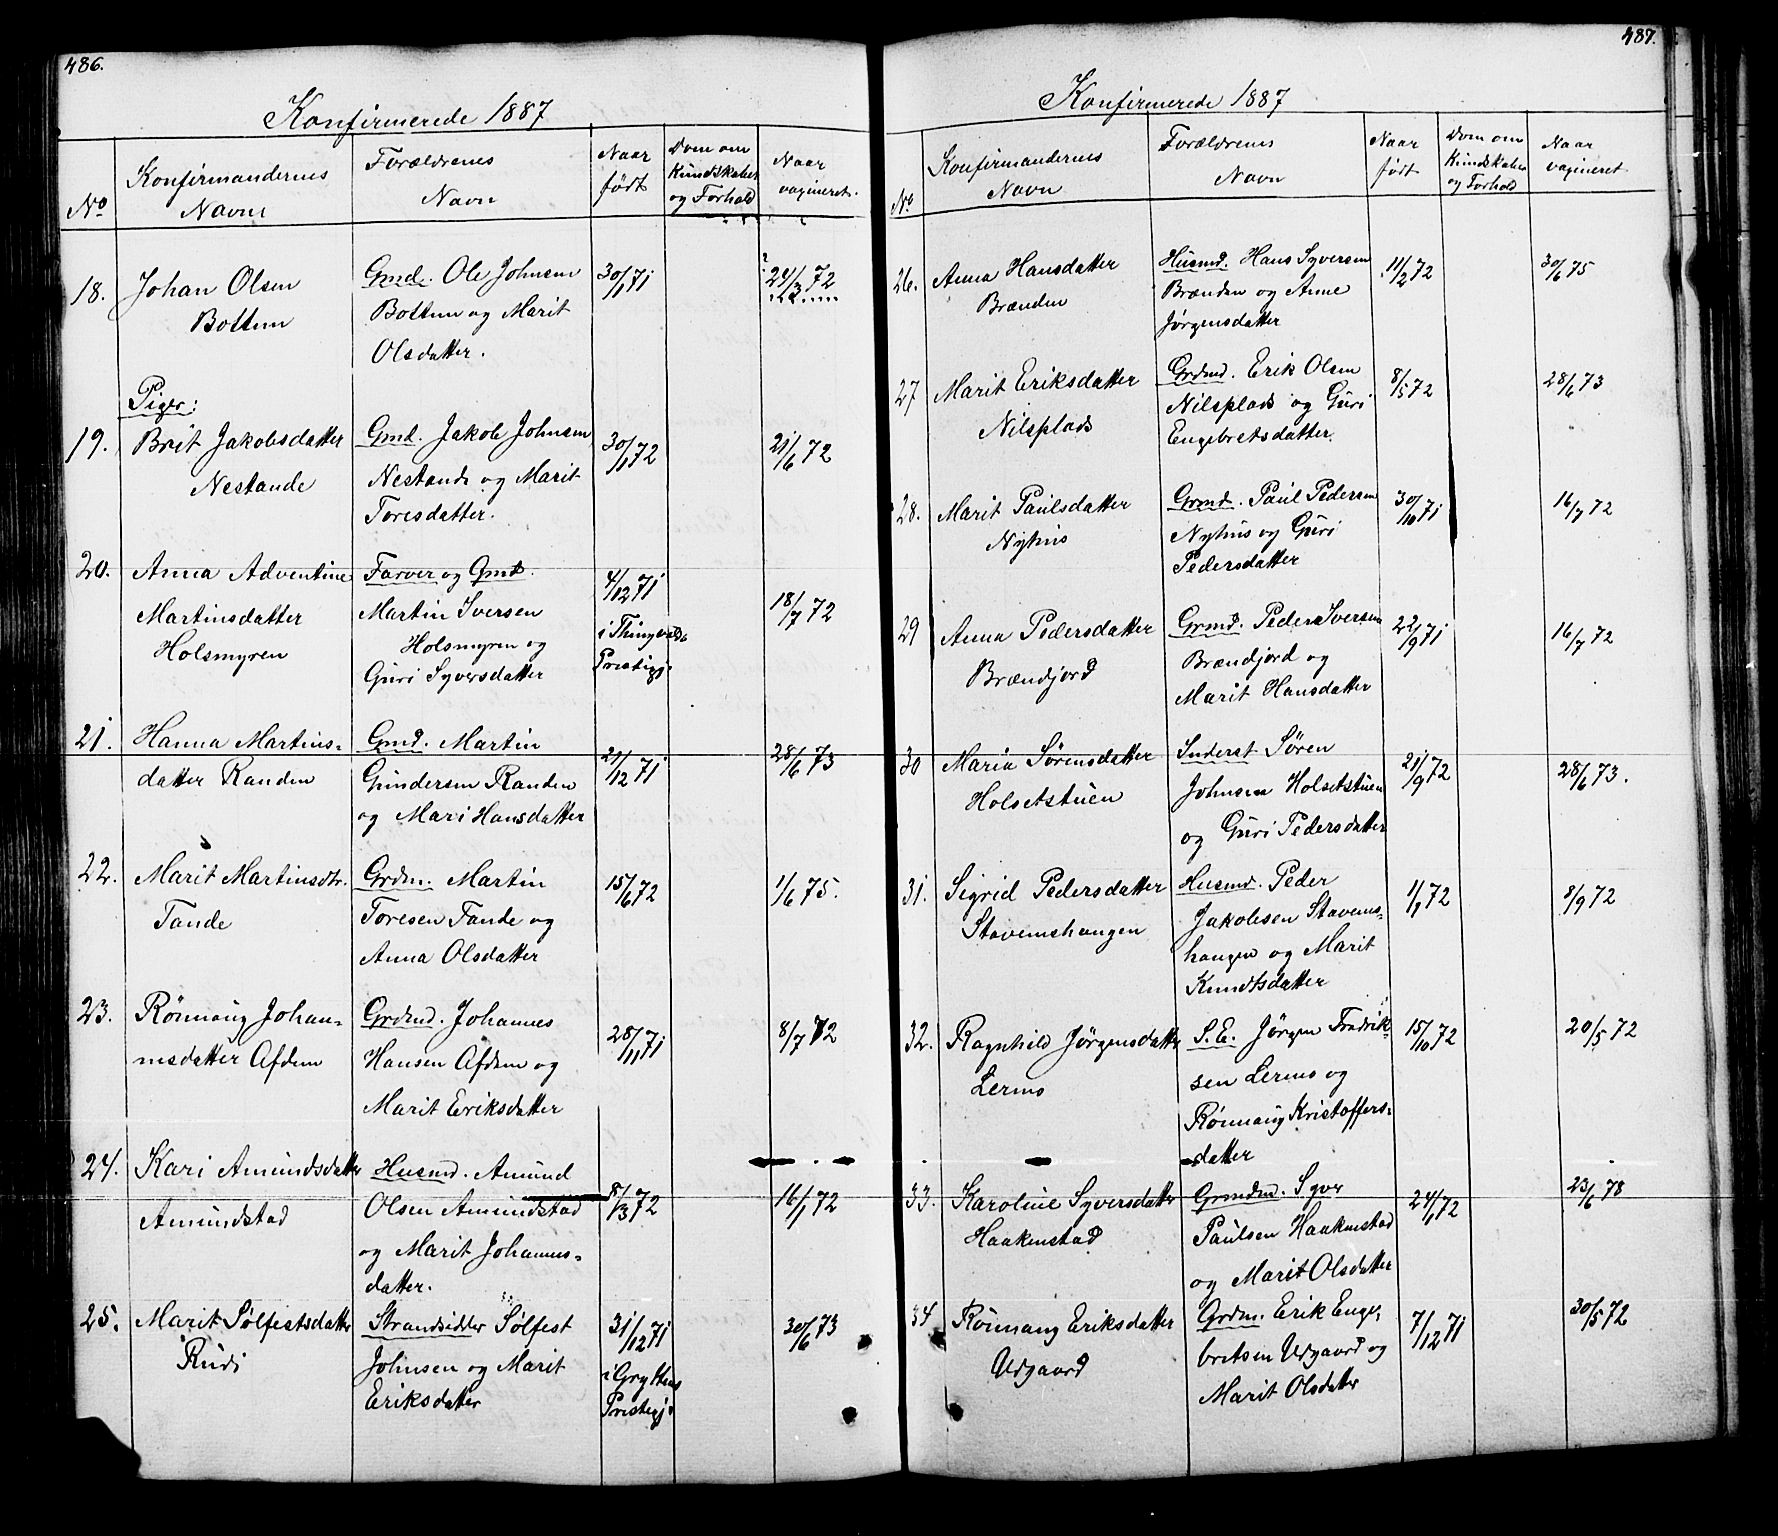 486.
Konfirmerede 1887
No
Konfirmandernes
Navne
Forældrenes
Navn
Naar
født
Dom om
Kundskaber
og Forhold
Naar
vaxineret.
18.
Johan Olsen
Bottem
Gmd. Ole Johnsen
Bottem og Marit
Olsdatter.
30/1 71
?
24/3 72
Piger:
19.
Brit Jakobsdatter
Nestande
Gmd. Jakob Johnsen
Nestande og Marit
Toresdatter.
30/1 72
21/6 72
20.
Anna Adventine
Martinsdatter
Holsmyren
Farver og Gmd.
Martin Iversen
Holsmyren og
Guri Syversdatter
4/12 71
i Thingvolds
Prestegj.
18/7 72
21.
Hanna Martins-
datter Randen
Gmd. Martin
Gundersen Randen
og Mari Hansdatter
21/12 71
28/6 73
22.
Marit Martinsdtr.
Tande
Grdm. Martin
Toresen Tande og
Anna Olsdatter
15/6 72
1/6 75.
23.
Rønnaug Johan-
nesdatter Afdem
Grdmd. Johannes
Hansen Afdem og
Marit Eriksdatter
28/11 71
8/7 72
24.
Kari Amundsdatter
Amundstad
Husmd. Amund
Olsen Amundstad
og Marit Johannes-
datter.
8/3 72
16/1 72
25.
Marit Sølfestsdatter
Rudi
Strandsidder Sølfest
Johnsen og Marit
Eriksdatter
31/12 71
i Gryttens
Prestegj.
30/6 73
487.
Konfirmerede 1887
No
Konfirmandernes
Navn
Forældrenes
Navn
Naar
født
Dom om
Kundskaber
og Forhold
Naar
vaxineret
26.
Anna Hansdatter
Brænden
Husmd. Hans Syversen
Brænden og Anne
Jørgensdatter
11/2 72
30/6 75
27
Marit Eriksdatter
Nilsplads
Grdmd. Erik Olsen
Nilsplads og Guri
Engebretsdatter.
8/5 72
28/6 73
28.
Marit Paulsdatter
Nyhus
Grmd. Paul Pedersen
Nyhus og Guri
Pedersdatter
30/10 71
16/7 72
29
Anna Pedersdatter
Brændjord
Grmd. Peder Iversen
Brændjord og
Marit Hansdatter
22/9 71
16/7 72
30
Maria Sørensdatter
Holsetstuen
Inderst Søren
Johnsen Holsetstuen
og Guri Pedersdatter
21/9 72
28/6 73.
31.
Sigrid Pedersdatter
Stavemshaugen
Husmd. Peder
Jakobsen Stavems-
haugen og Marit
Knudtsdatter
1/1 72
8/9 72
32.
Ragnhild Jørgensdatter
Lermo
S.E. Jørgen Fredrik-
sen Lermo og
Rønnaug Kristoffers-
datter
15/10 72
20/5 72
33.
Karoline Syversdatter
Haakenstad
Grmdmd. Syver
Paulsen Haakenstad
og Marit Olsdatter
24/1 72
23/6 78
34
Rønnaug Eriksdatter
Udgaard
Grdm. Erik Enge-
bretsen Udgaard og
Marit Olsdatter
7/12 71
30/5 72